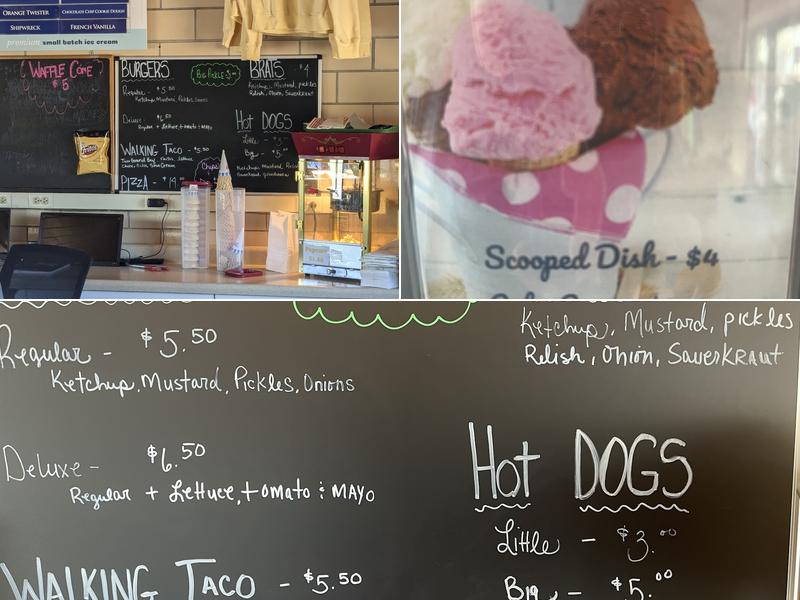 ORANGE TWISTER
CHOCOLATE CHIP COOKIE DOUGH
SHIPWRECK
FRENCH VANILLA
premium small batch ice cream
WAFFLE CONE
$5
BURGERS
Regular - $5.50
Ketchup, Mustard, Pickles, Onions
Deluxe - $6.50
Regular + Lettuce, tomato & MAYO
WALKING TACO - $5.50
PIZZA -
BIG PICKLE
BRATS
$4
Ketchup, Mustard, pickles
Relish, Onion, Sauerkraut
Hot DOGS
Little -
Big -
Ketchup, Mustard, Relish
Chips
Popcorn
Scooped Dish - $4
Regular - $5.50
Ketchup, Mustard, Pickles, Onions
Deluxe - $6.50
Regular + Lettuce, tomato & MAYO
WALKING TACO - $5.50
Ketchup, Mustard, pickles
Relish, Onion, SauerKRAUT
Hot DOGS
Little - $3.00
Big - $5.00